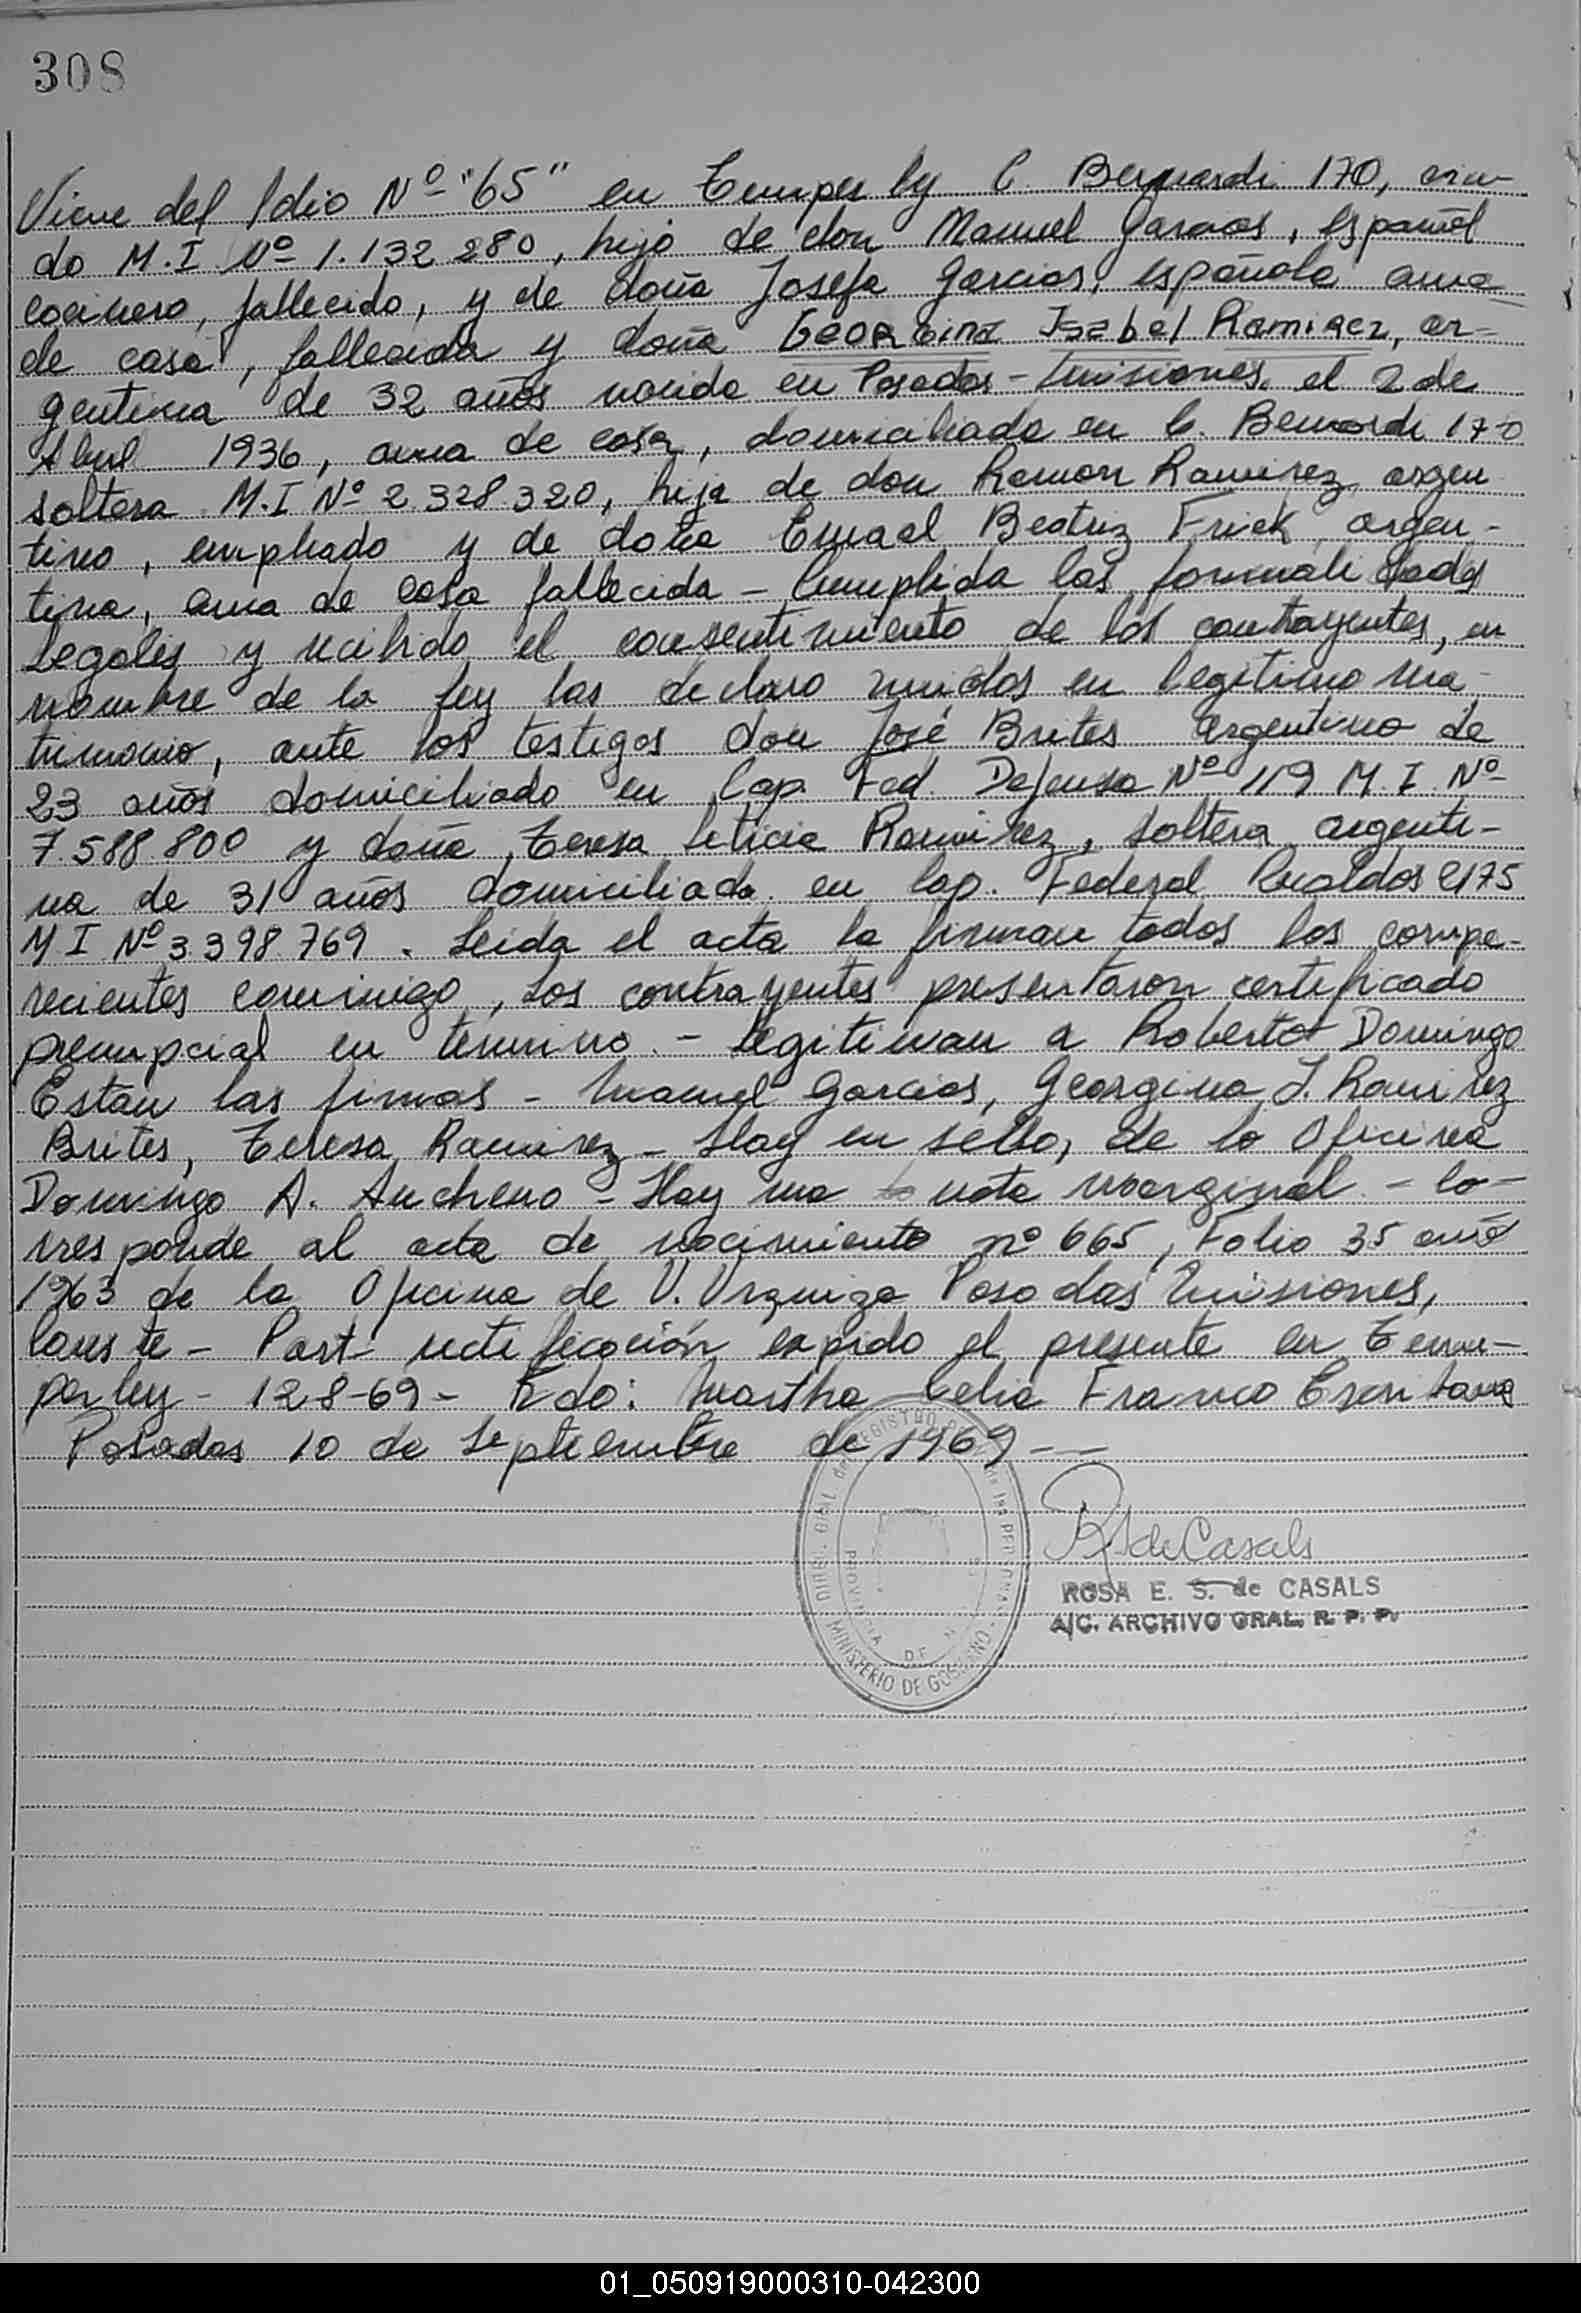 308
Viene del folio Nº "65" en Temperley C. Bernardi 170, viu-
do M.I. Nº 1.132.280, hijo de don Manuel Garcias, español
cocinero, fallecido, y de doña Josefa Garcias, española ama
de casa, fallecida y doña Georgina Isabel Ramirez, ar-
gentina de 32 años nacida en Posadas - Misiones, el 2 de
Abril 1936, ama de casa, domiciliada en C. Bernardi 170
soltera M.I Nº 2.328.320, hija de don Ramon Ramirez, argen
tino, empleado y de doña Beatriz Frick, argen-
tina, ama de casa fallecida - Cumplida las formalidades
Legales y recibido el consentimiento de los contrayentes, en
nombre de la Ley los declaro unidos en legitimo ma-
trimonio, ante los testigos don José Brites argentino de
23 años domiciliado en Cap. Fed. Defensa Nº 119 M.I. Nº
7.588.800 y doña Teresa Leticia Ramirez, soltera argenti-
na de 31 años domiciliada en Cap. Federal 2175
M I Nº 3.398.769. Leida el acta la firman todos los compa-
recientes conmigo, Los contrayentes presentaron certificado
prenupcial en termino - Legitiman a Roberto Domingo
Estan las firmas - Manuel Garcias, Georgina I. Ramirez
Brites, Teresa Ramirez - Hay un sello, de la Oficina
Domingo A. Ancheno - Hay una nota marginal - Co-
rresponde al acta de nacimiento nº 665, Folio 35 año
1963 de la Oficina de V. Urquiza Posadas Misiones,
Conste - Part rectificación expido el presente en Tem-
perley - 12-8-69 - Fdo: Martha Celia Franco Escribana
Posadas 10 de Septiembre de 1969 --
DIREC. GRAL. del REGISTRO de las PERSONAS
PROVINCIA DE
MINISTERIO DE GOBIERNO
R S de Casals
ROSA E. S. de CASALS
A/C. ARCHIVO GRAL. R. P. P.
01_050919000310-042300